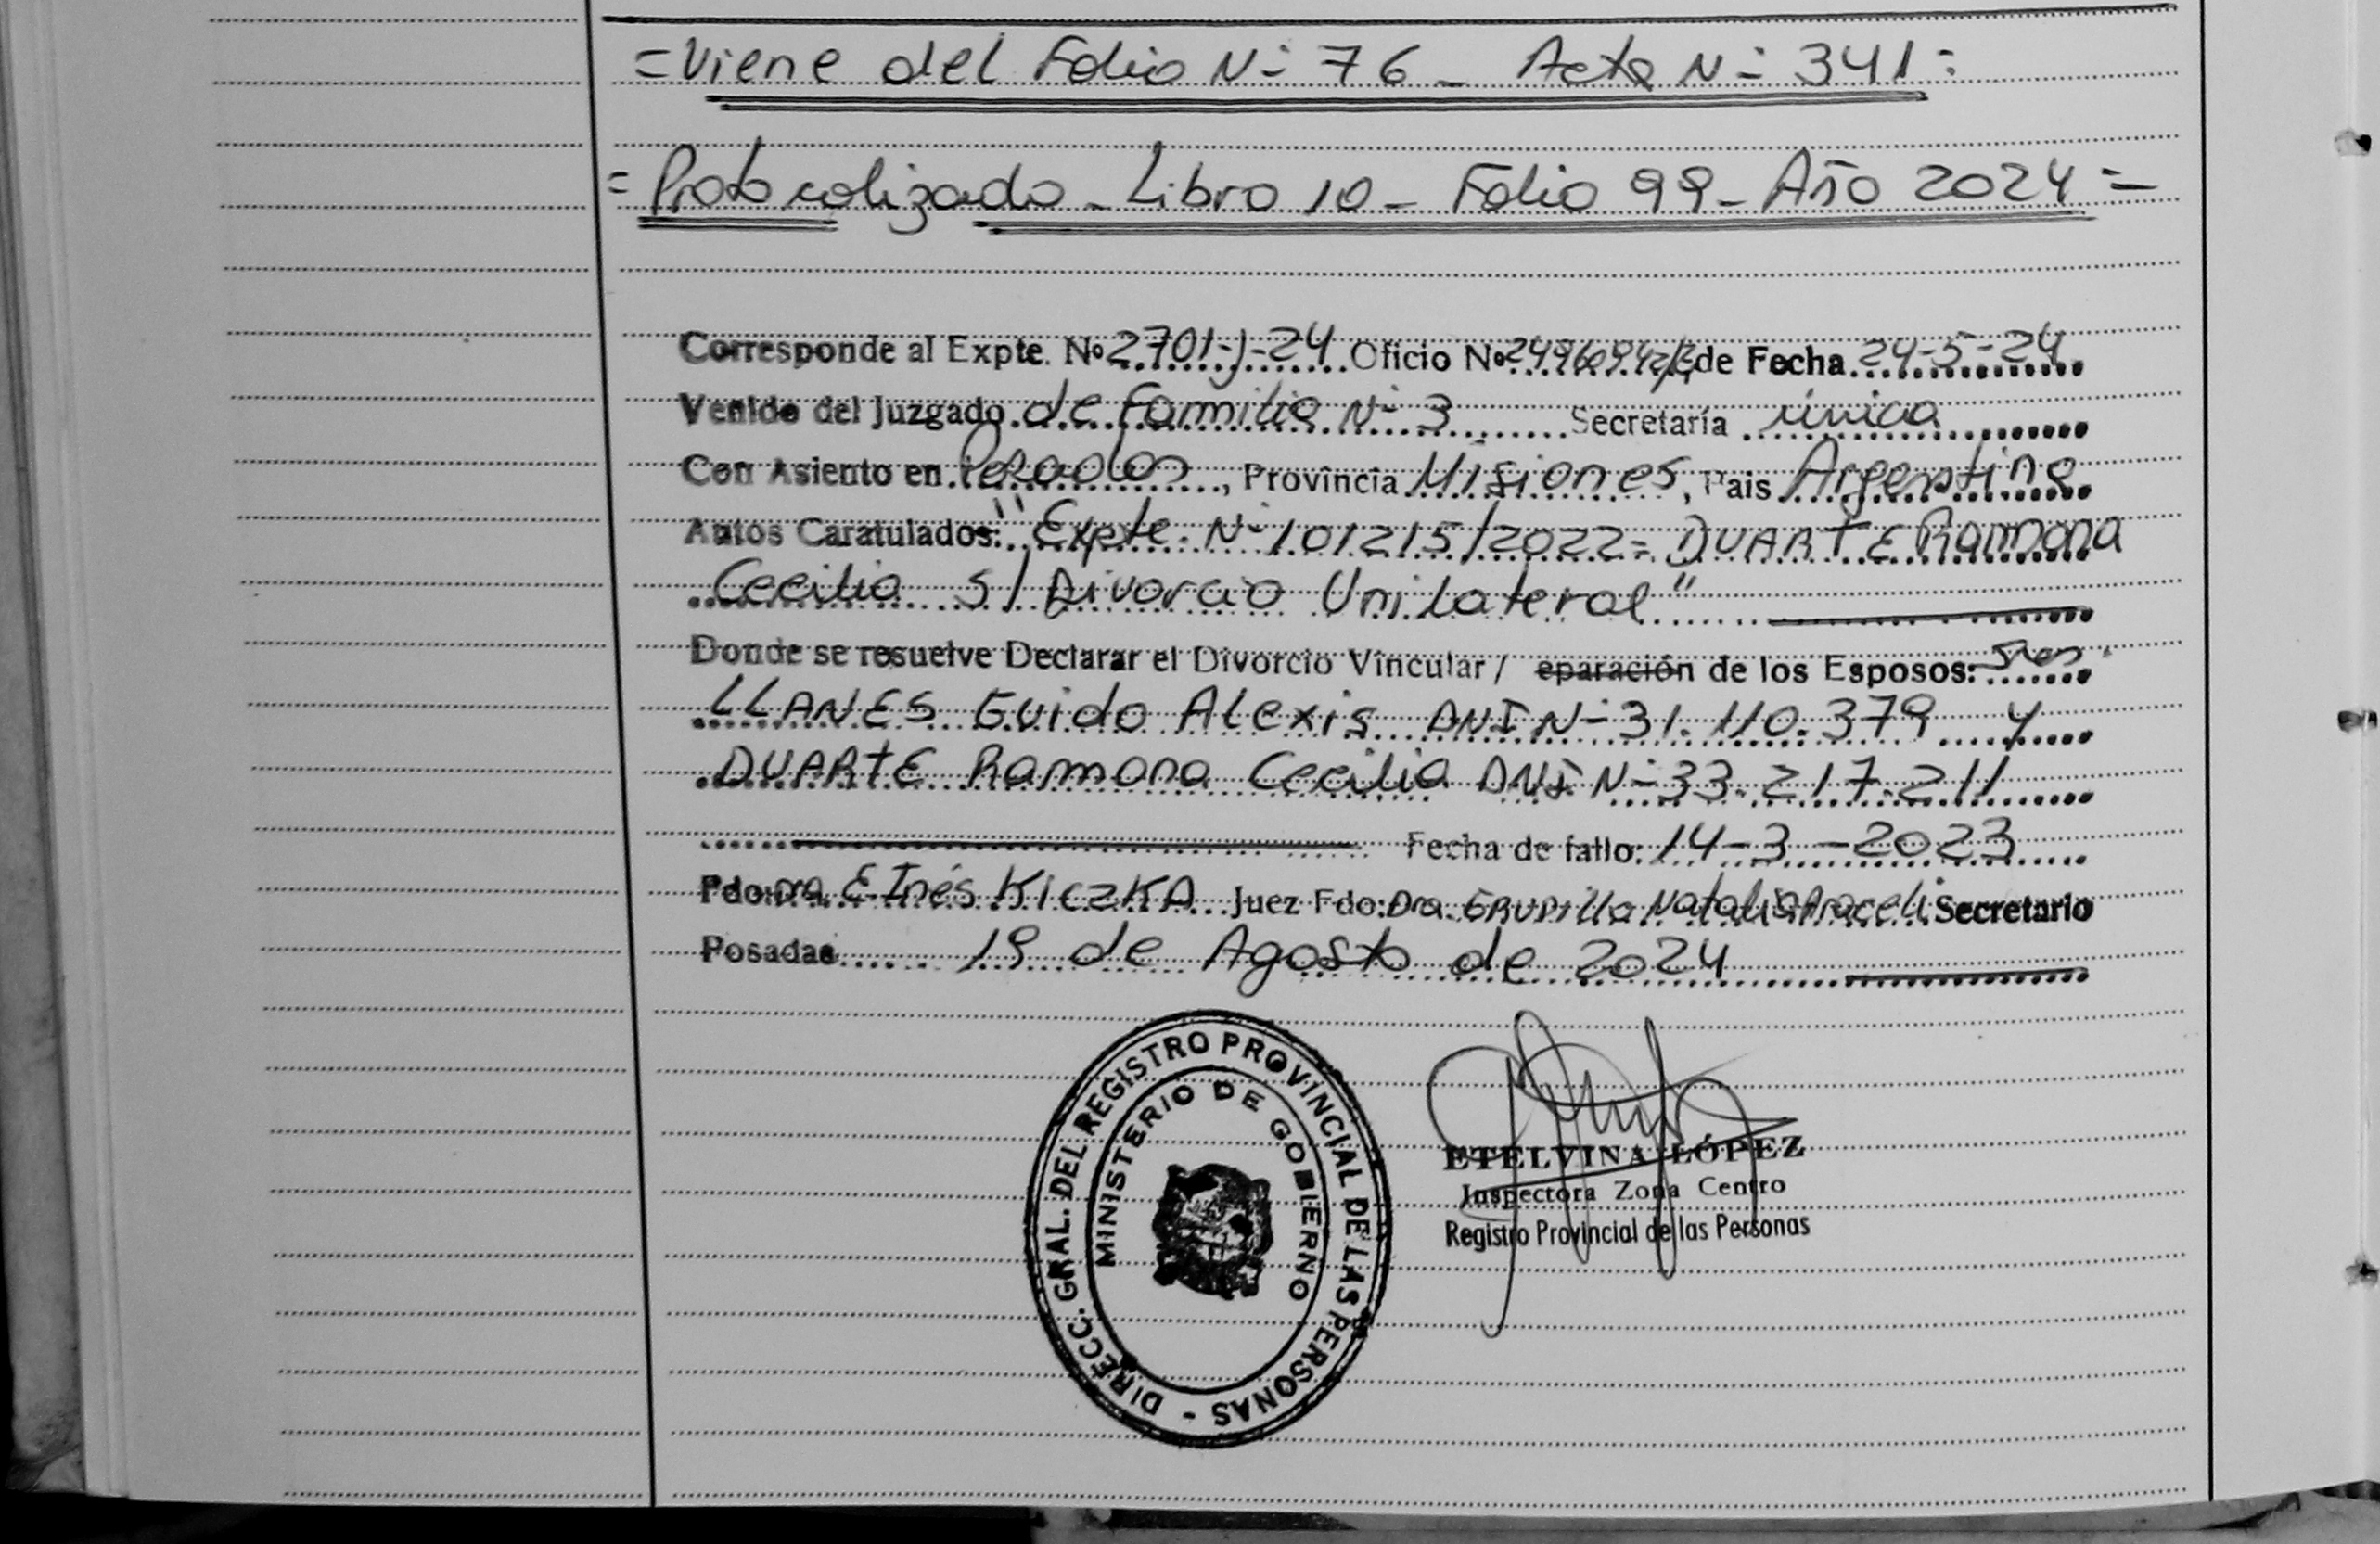 =Viene del Folio Nº 76 _ Acta Nº 341=
=Protocolizado _ Libro 10 _ Folio 99 _ Año 2024=
Corresponde al Expte. Nº 2701-J-24 Oficio Nº de Fecha 24-5-24
Venido del Juzgado de Familia Nº 3 Secretaría única
Con Asiento en Posadas, Provincia Misiones, Pais Argentina
Autos Caratulados: "Expte. Nº 101215/2022= DUARTE Ramona
Cecilia S/ Divorcio Unilateral"
Donde se resuelve Declarar el Divorcio Vincular / eparación de los Esposos: Sres.
LLANES Guido Alexis DNI Nº 31.110.379 y
DUARTE Ramona Cecilia DNI Nº 33.217.211
Fecha de fallo: 14-3-2023
Fdo: Dra. E. Inés KICZKA Juez Fdo: Dra. Natalia Araceli Secretario
Posadas 19 de Agosto de 2024
DIRECC. GRAL. DEL REGISTRO PROVINCIAL DE LAS PERSONAS -
MINISTERIO DE GOBIERNO
ETELVINA LÓPEZ
Inspectora Zona Centro
Registro Provincial de las Personas